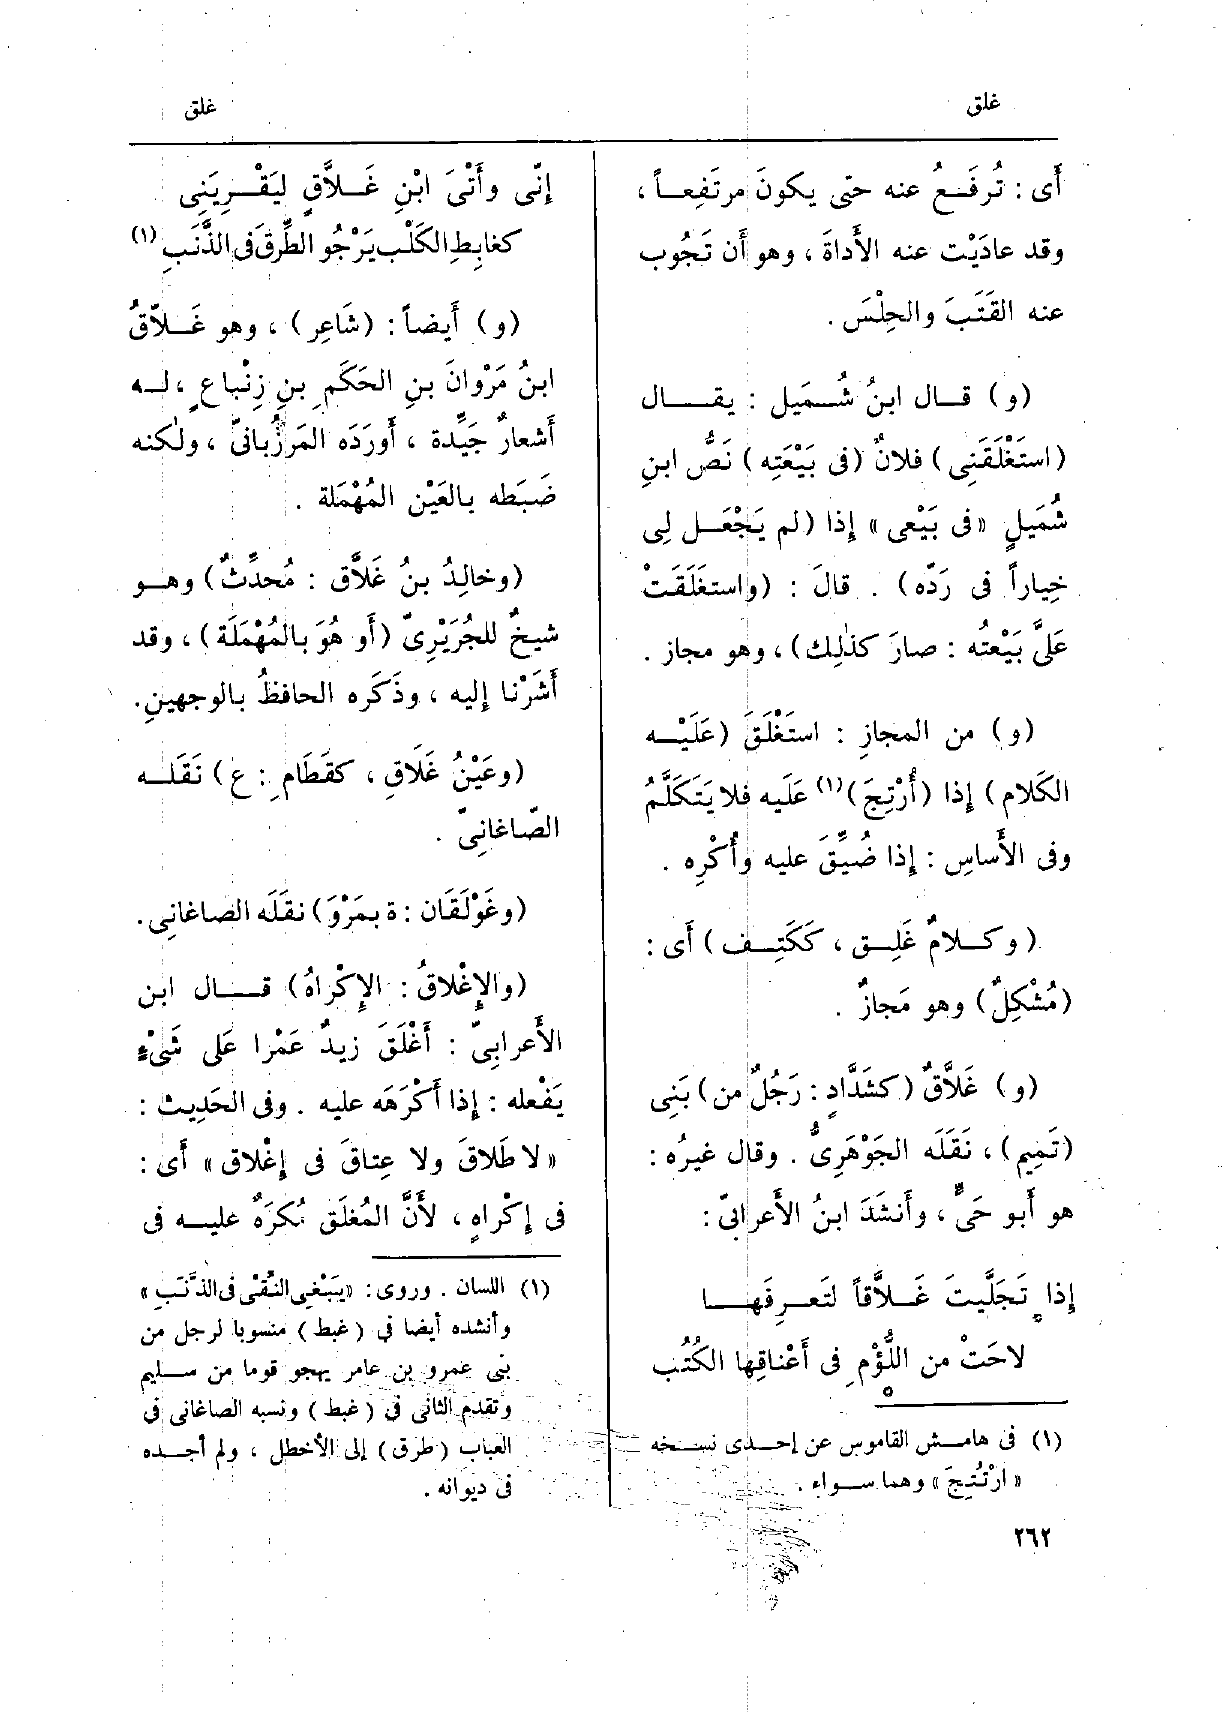 غلق
غلق
أَى : تُرفَعُ عنه حتى يكونَ مرتفِعاً ،
وقد عادَيْت عنه الأَداةَ ، وهو أَن تَجُوب
عنه القَتَبَ والحِلْسَ .
(و) قال ابنُ شُمَيل : يقال
(استَغْلَقَنِى) فلانٌ (فى بَيْعَتِه) نَصُّ ابنِ
شُمَيلٍ «فى بَيْعى» إذا (لم يَجْعَل لِى
خِياراً فى رَدّه) . قالَ : (واستغلَقَتْ
عَلىَّ بَيْعتُه : صارَ كذٰلِك) ، وهو مجاز .
(و) من المجازِ : استَغْلَقَ (عَلَيْه
الكَلام) إذا (أُرْتِجَ)(١) عَلَيه فلا يَتَكلَّمُ
وفى الأَساسِ : إذا ضُيِّقَ عليه وأُكْرِه .
(وكلامٌ غَلِق ، كَكَتِف) أَى :
(مُشْكِلٌ) وهو مَجازٌ .
(و) غَلاَّقٌ (كشَدَّادٍ : رَجُلٌ من) بَنِى
(تَمِيم) ، نَقَلَه الجَوْهَرِىُّ . وقال غيرُه :
هو أَبو حَىٍّ ، وأَنشَدَ ابنُ الأَعرابىّ :
إذا تَجَلَّيتَ غَلاَّقاً لتَعرِفَها
لاحَتْ من اللُّؤْمِ فى أَعْناقِها الكُتُب
(١) فى هامش القاموس عن إحدى نسخه
«ارْتُتِجَ» وهما سواء .
٢٦٢
إنّى وأَتْىَ ابْنِ غَلاَّقٍ ليَقْرِيَنِى
كغابِطِ الكَلْبِ يَرْجُو الطِّرْقَ فى الذَّنَبِ(١)
(و) أَيضاً : (شَاعِر) ، وهو غَلاّقُ
ابنُ مَرْوانَ بنِ الحَكَمِ بنِ زِنْباعٍ ، له
أَشعارٌ جَيِّدة ، أَورَدَه المَرزُبانىّ ، ولٰكنه
ضَبَطه بالعَيْن المُهْمَلة .
(وخالِدُ بنُ غَلاَّق : مُحدِّثٌ) وهو
شيخٌ للجُرَيْرِىّ (أَو هُوَ بالمُهْمَلَة) ، وقد
أَشَرْنا إليه ، وذَكَره الحافظُ بالوجهينِ.
(وعَيْنُ غَلَاقِ ، كقَطَامِ : ع) نَقَله
الصّاغانِىّ .
(وغَوْلَقَان : ة بمَرْوَ) نقَلَه الصاغانِى.
(والإغْلاقُ : الإكْراهُ) قال ابن
الأَعرابِىّ : أَغْلَقَ زيدٌ عَمْرا عَلى شَىْءٍ
يَفْعله : إذا أَكْرَهَه عليه . وفى الحَدِيث :
«لا طَلاقَ ولا عِتاقَ فى إغْلاق» أَى :
فى إكْراهٍ ، لأَنَّ المُغلَق مُكرَهٌ عليه فى
(١) اللسان . وروى : «يَبْغِى النِّقْىَ فى الذَّنَبِ»
وأنشده أيضا فى (غبط) منسوبا لرجل من
بنى عمرو بن عامر يهجو قوما من سليم
وتقدم الثانى فى (غبط) ونسبه الصاغانى فى
العباب (طرق) إلى الأخطل ، ولم أجده
فى ديوانه .